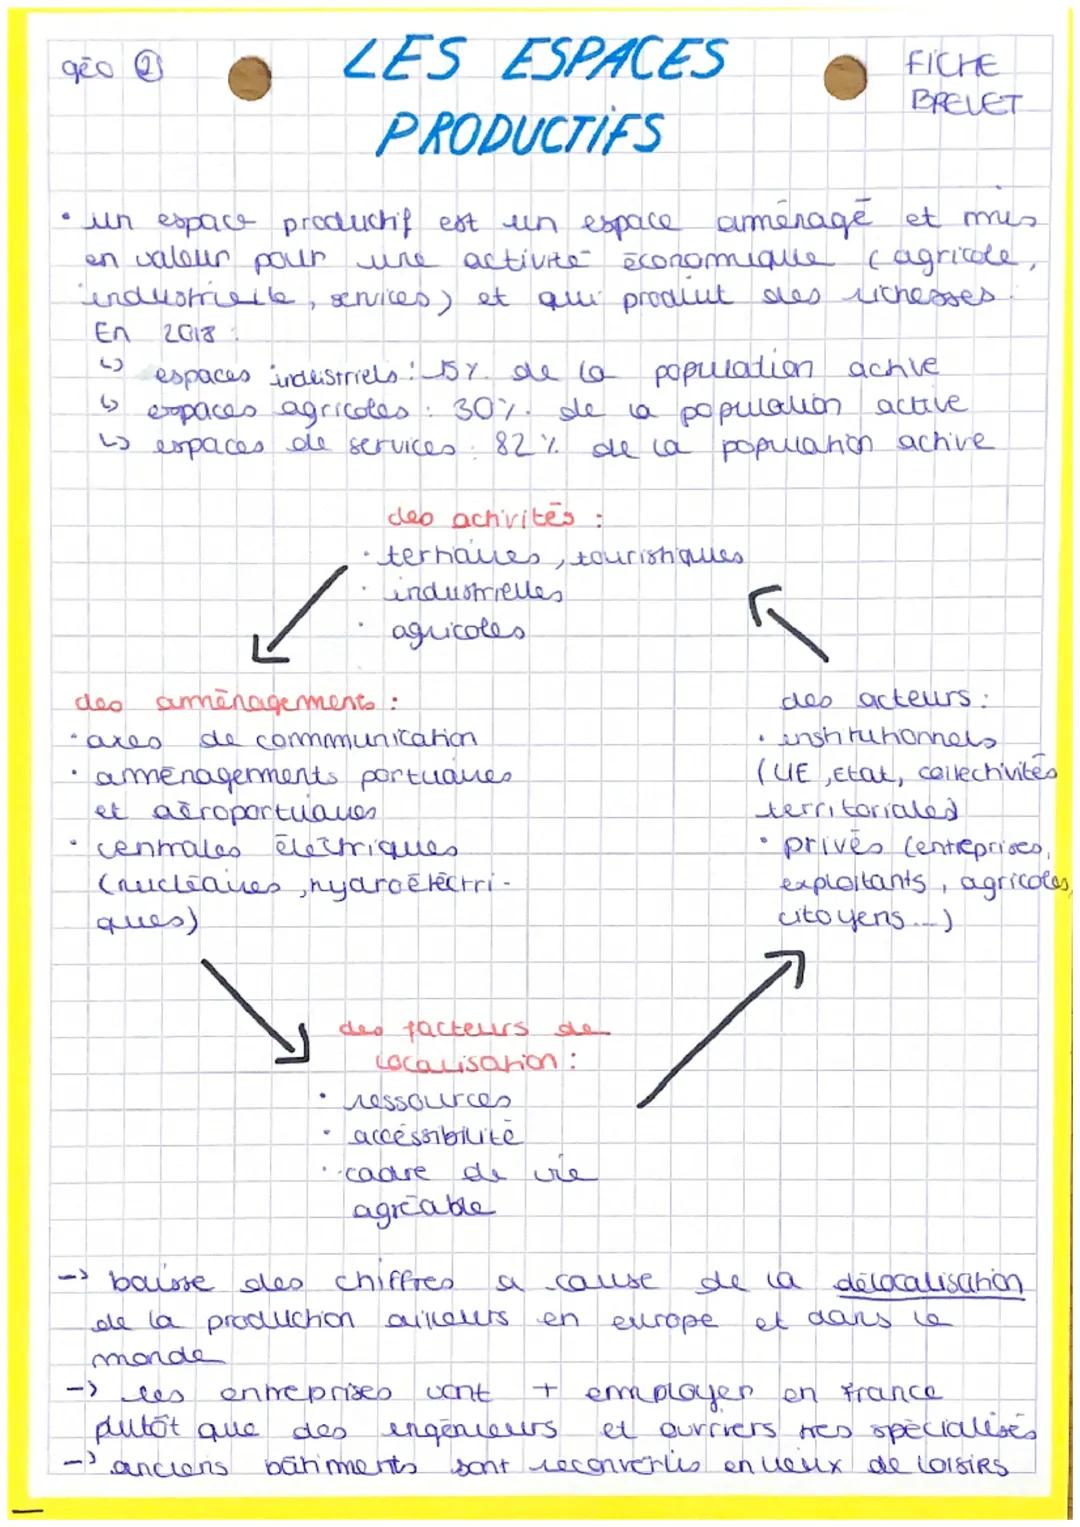 géo ②
LES ESPACES
PRODUCTIFS
FICHE
BREVET
• un espace productif est un espace aménagé et mis
en valeur pour une activité économique (agricole,
industrielle, services) et qui produit des richesses.
En 2018 :
↳ espaces industriels : 15% de la population active
↳ espaces agricoles : 30% de la population active
↳ espaces de services : 82 % de la population active
des activités :
· tertiaires, touristiques
· industrielles
· agricoles
des aménagements :
· axes de communication
· aménagements portuaires
et aéroportuaires
· centrales électriques
(nucléaires, hydroélectri-
ques)
des acteurs :
· institutionnels
(UE, Etat, collectivités
territoriales)
· privés (entreprises,
exploitants, agricoles,
citoyens...)
des facteurs de
localisation :
· ressources
· accéssibilité
· cadre de vie
agréable
-> baisse des chiffres a cause de la délocalisation
de la production ailleurs en europe et dans le
monde
-> les entreprises vont + employer en France
plutôt que des engénieurs et ouvriers très spécialisés
-> anciens bâtiments sont reconvertis en lieux de loisirs